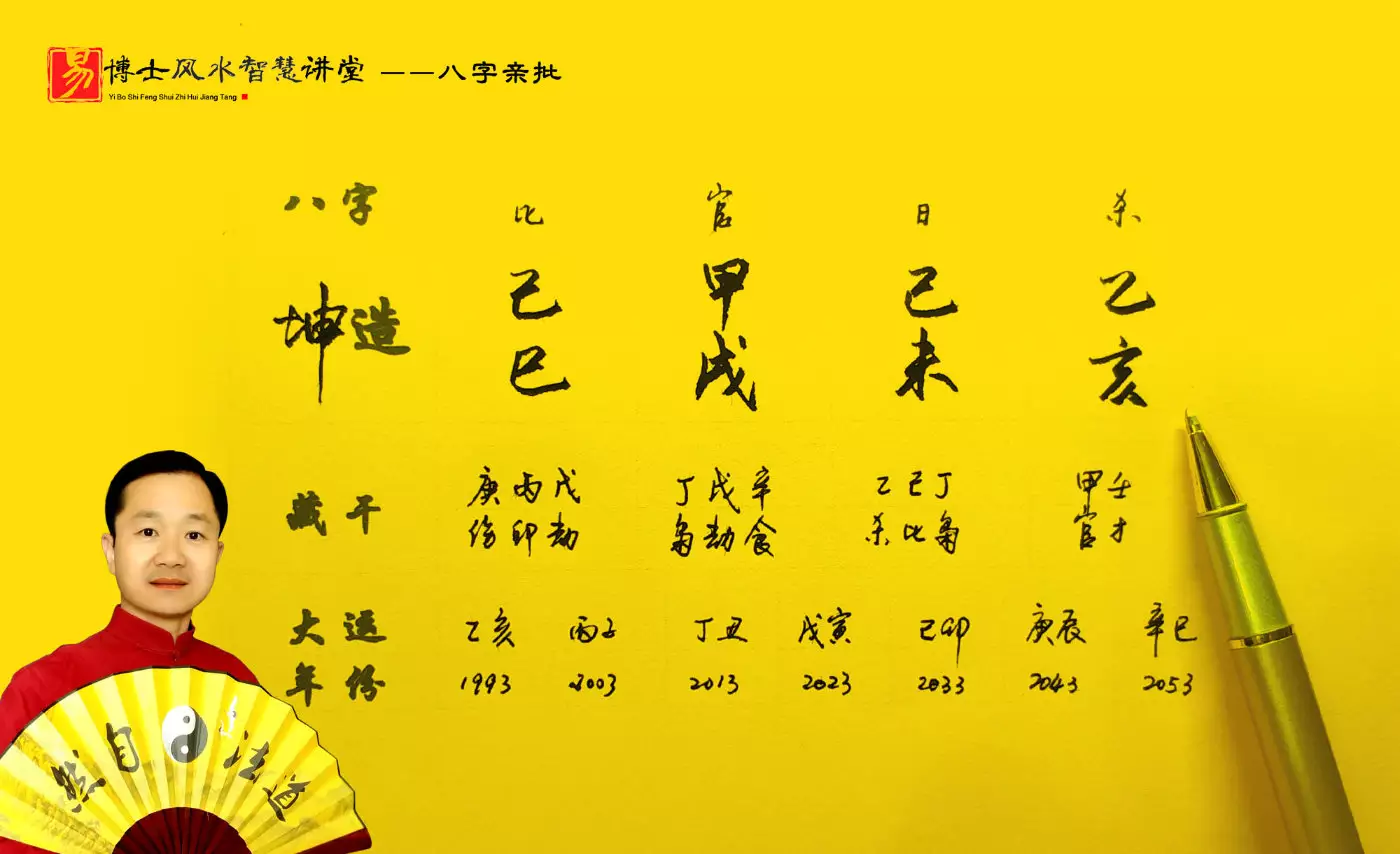 易博士风水智慧讲堂 ——八字亲批
Yi Bo Shi Feng Shui Zhi Hui Jiang Tang
八字 比 官 日 杀
坤造 己 甲 己 乙
巳 戌 未 亥
藏干 庚丙戊 丁戊辛 乙己丁 甲壬
伤印劫 枭劫食 杀比枭 官才
大运 乙亥 丙子 丁丑 戊寅 己卯 庚辰 辛巳
年份 1993 2003 2013 2023 2033 2043 2053
然自法道